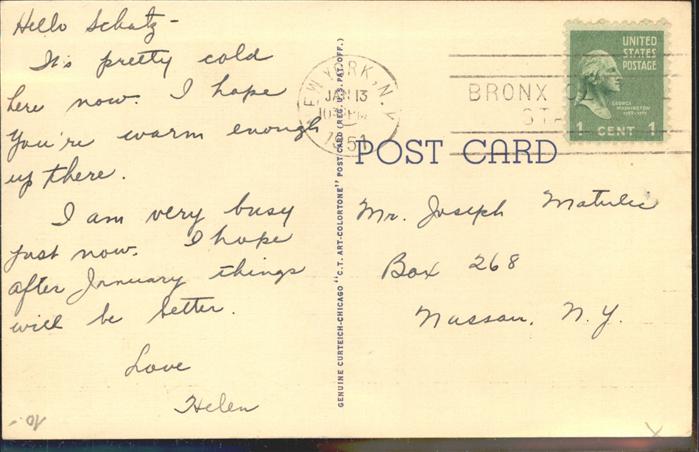 Hello Schatz -
It's pretty cold
here now. I hope
you're warm enough
up there.
I am very busy
just now. I hope
after January things
will be better.
Love
Helen
10.-
GENUINE CURTEICH-CHICAGO "C.T. ART-COLORTONE" POST CARD (REG. U.S. PAT. OFF.)
NEW YORK, N.Y.
JAN 13
1951
BRONX
UNITED
STATES
POSTAGE
GEORGE
WASHINGTON
1 CENT 1
POST CARD
Mr. Joseph
Box 268
Nassau, N.Y.
X